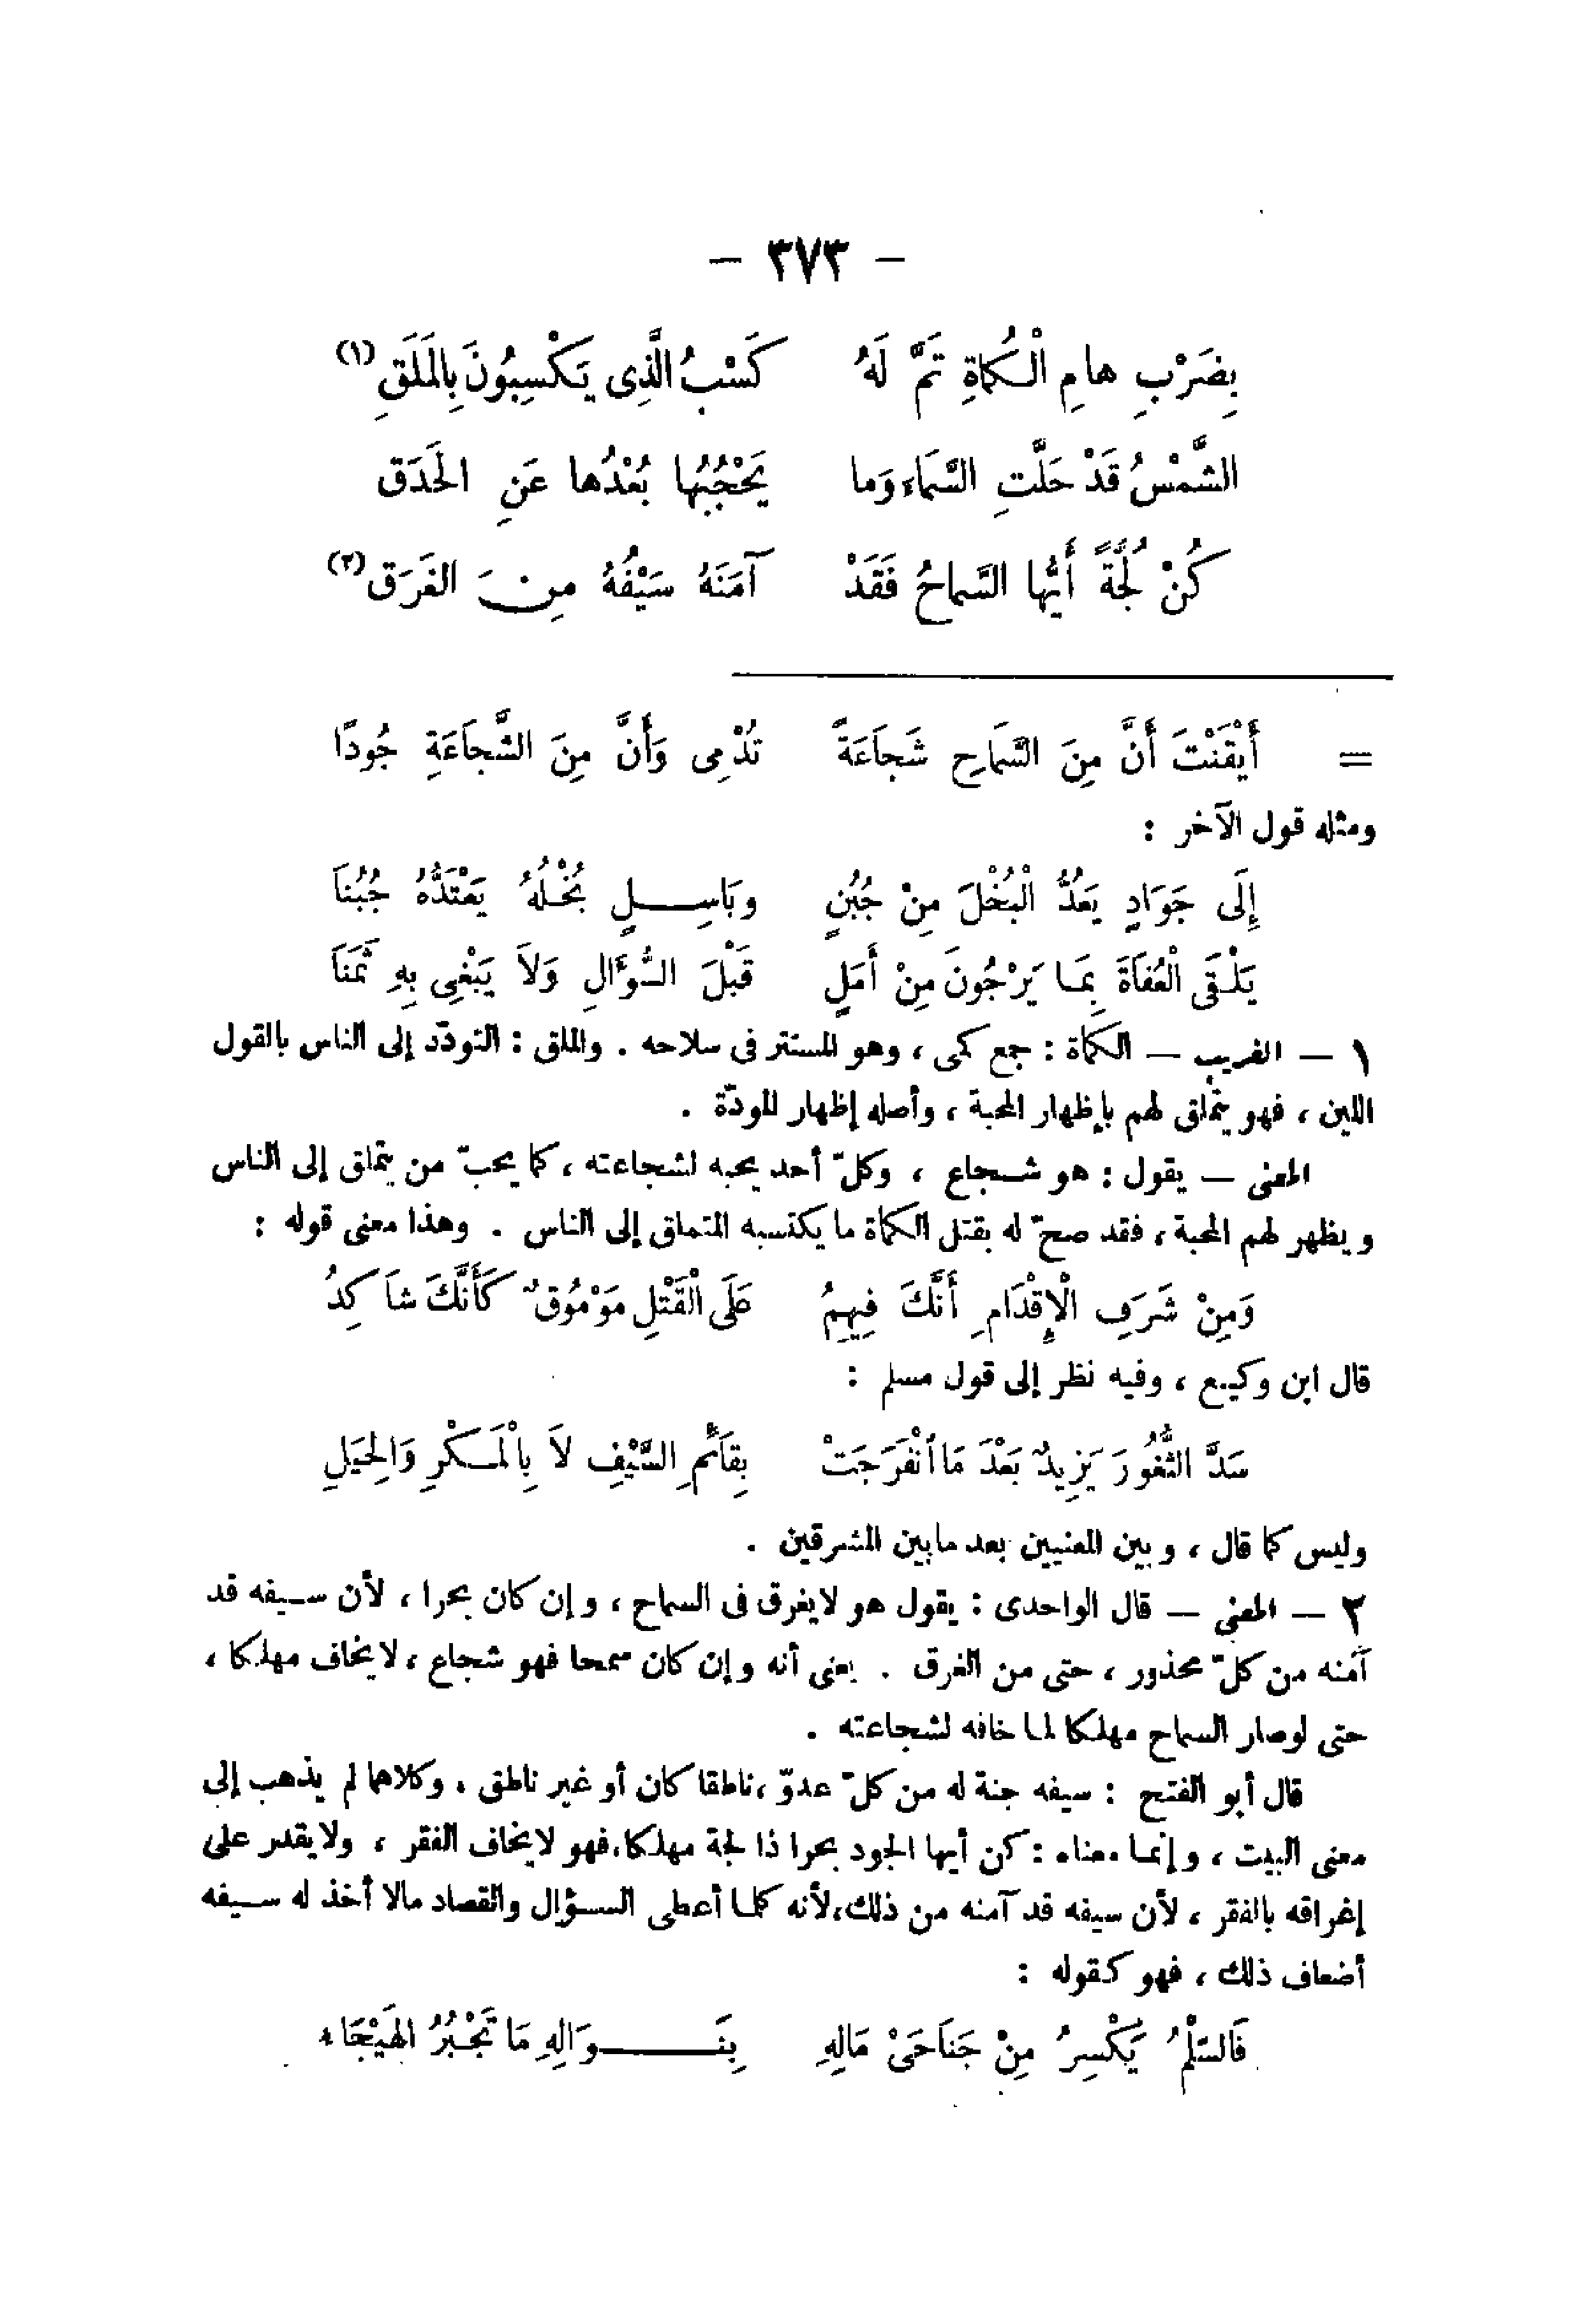 — ٣٧٣ —
بِضَرْبِ هامِ الْكُماةِ تَمَّ لَهُ كَسْبُ الَّذِى يَكْسِبُونَ بِالمَلَقِ (١)
الشَّمْسُ قَدْ حَلَّتِ السَّمَاءَ وَما يَحْجُبُها بُعْدُها عَنِ الحَدَقِ
كُنْ لُجَّةً أَيُّها السَّماحُ فَقَدْ آمَنَهُ سَيْفُهُ مِنَ الغَرَقِ (٢)
= أَيْقَنْتَ أَنَّ مِنَ السَّمَاحِ شَجَاعَةً تُدْمِى وَأَنَّ مِنَ الشَّجَاعَةِ جُودًا
ومثله قول الآخر :
إِلَى جَوَادٍ يَعُدُّ الْبُخْلَ مِنْ جُبُنٍ وبَاسِلٍ بُخْلُهُ يَعْتَدُّهُ جُبُنَا
يَلْقَى الْعُفَاةَ بِمَا يَرْجُونَ مِنْ أَمَلٍ قَبْلَ السُّؤَالِ وَلاَ يَبْغِى بِهِ ثَمَنَا
١ — الغريب — الكماة : جمع كمى ، وهو المستتر فى سلاحه . والملق : التودّد إلى الناس بالقول
اللين ، فهو يتملق لهم بإظهار المحبة ، وأصله إظهار المودّة .
المعنى — يقول : هو شجاع ، وكلّ أحد يحبه لشجاعته ، كما يحبّ من يتملق إلى الناس
ويظهر لهم المحبة ، فقد صحّ له بقتل الكماة ما يكتسبه المتملق إلى الناس . وهذا معنى قوله :
وَمِنْ شَرَفِ الْإِقْدَامِ أَنَّكَ فِيهِمُ عَلَى الْقَتْلِ مَوْمُوقٌ كَأَنَّكَ شَاكِدُ
قال ابن وكيع ، وفيه نظر إلى قول مسلم :
سَدَّ الثُّغُورَ يَزِيدٌ بَعْدَ مَا انْفَرَجَتْ بِقَائِمِ السَّيْفِ لاَ بِالْمَكْرِ وَالْحِيَلِ
وليس كما قال ، وبين المعنيين بعد مابين المشرقين .
٢ — المعنى — قال الواحدى : يقول هو لايغرق فى السماح ، وإن كان بحرا ، لأن سيفه قد
آمنه من كلّ محذور ، حتى من الغرق . يعنى أنه وإن كان سمحا فهو شجاع ، لايخاف مهلكا ،
حتى لوصار السماح مهلكا لما خافه لشجاعته .
قال أبو الفتح : سيفه جنة له من كلّ عدوّ ، ناطقا كان أو غير ناطق . وكلاهما لم يذهب إلى
معنى البيت ، وإنما معناه : كن أيها الجود بحرا ذا لجة مهلكا ، فهو لايخاف الفقر ، ولايقدر على
إغراقه بالفقر ، لأن سيفه قد آمنه من ذلك ، لأنه كلما أعطى السؤال والقصاد مالا أخذ له سيفه
أضعاف ذلك ، فهو كقوله :
فَالسّلْمُ يَكْسِرُ مِنْ جَنَاحَىْ مَالِهِ بِنَوَالِهِ مَا تَجْبُرُ الهَيْجَاءُ